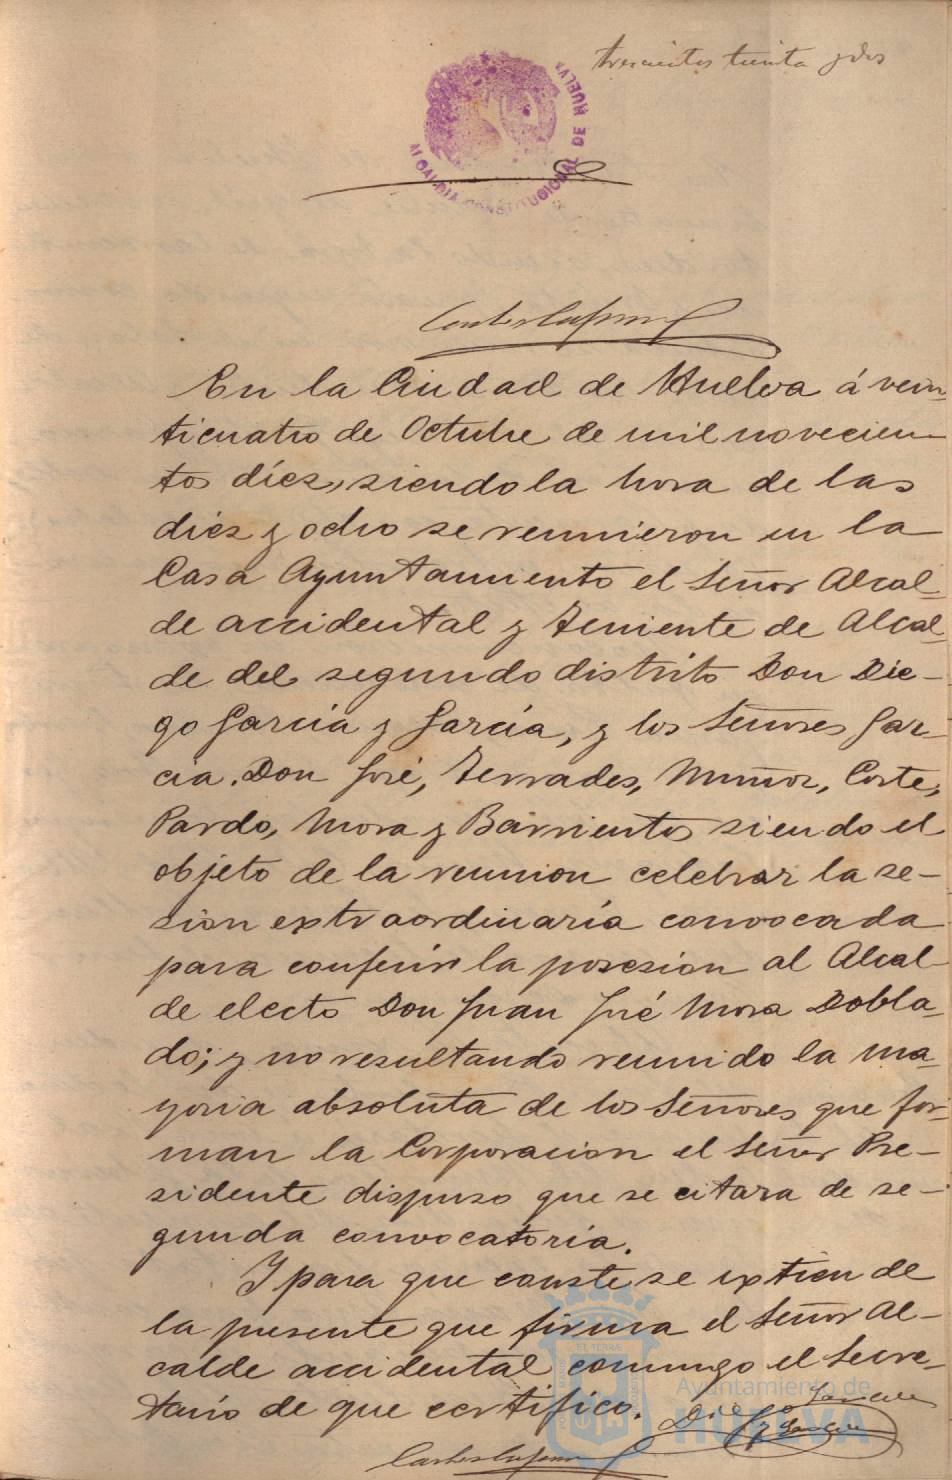 trescientos treinta y dos
ALCALDIA CONSTITUCIONAL DE HUELVA
En la Ciudad de Huelva á vein-
ticuatro de Octubre de mil novecien-
tos diez, siendo la hora de las
diez y ocho se reunieron en la
Casa Ayuntamiento el Señor Alcal-
de accidental y Teniente de Alcal-
de del segundo distrito Don Die-
go García y García, y los Señores Gar-
cia Don José, Terrades, Muñoz, Corte,
Pardo, Mora y Barrientos siendo el
objeto de la reunion celebrar la se-
sion extraordinaría convocada
para conferir la posesion al Alcal-
de electo Don Juan José Mora Dobla-
do; y no resultando reunido la ma-
yoria absoluta de los Señores que for-
man la Corporacion el Señor Pre-
sidente dispuso que se citara de se-
gunda convocatoría.
Y para que conste se extien de
la presente que firma el Señor Al-
calde accidental conmigo el Secre-
tario de que certifico.
Diego García
y García
Ayuntamiento de
HUELVA